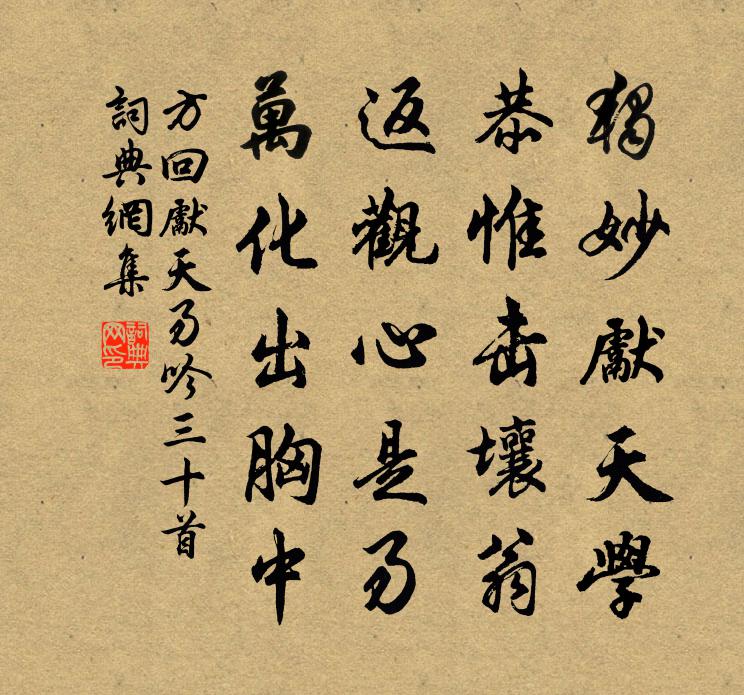 獨妙獻天學
恭惟擊壤翁
返觀心是易
萬化出胸中
方回獻天易吟三十首
詞典網集
詞典网印